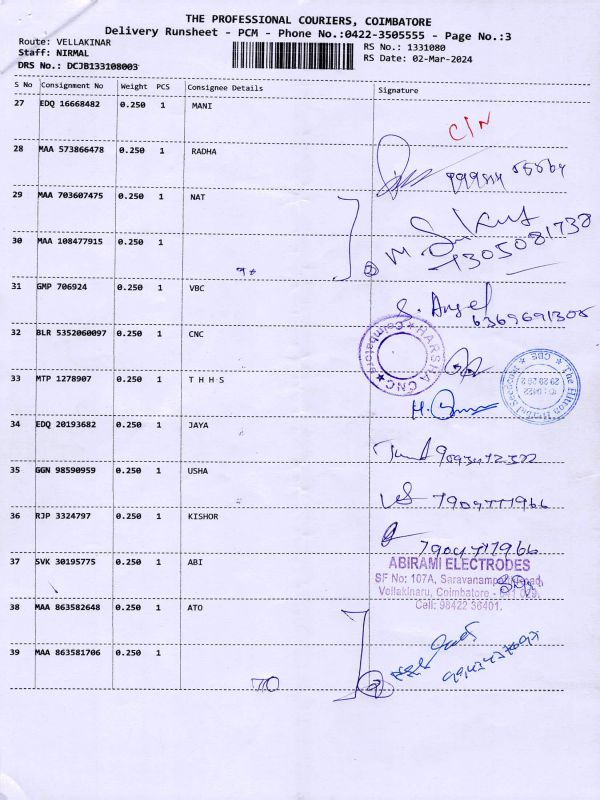 THE PROFESSIONAL COURIERS, COIMBATORE
Delivery Runsheet - PCM - Phone No.:0422-3505555 - Page No.:3
Route: VELLAKINAR
RS No.: 1331080
Staff: NIRMAL
RS Date: 02-Mar-2024
DRS No.: DCJB133108003
S No Consignment No Weight PCS Consignee Details Signature
27 EDQ 16668482 0.250 1 MANI
C/N
28 MAA 573866478 0.250 1 RADHA
29 MAA 703607475 0.250 1 NAT
30 MAA 108477915 0.250 1
31 GMP 706924 0.250 1 VBC
S. Angel
6369691305
32 BLR 5352060097 0.250 1 CNC
HARSHA CNC
Coimbatore
33 MTP 1278907 0.250 1 T H H S
34 EDQ 20193682 0.250 1 JAYA
35 GGN 98590959 0.250 1 USHA
36 RJP 3324797 0.250 1 KISHOR
37 SVK 30195775 0.250 1 ABI
ABIRAMI ELECTRODES
SF No: 107A, Saravanampatti Road,
Vellakinaru, Coimbatore
Cell: 98422 36401.
38 MAA 863582648 0.250 1 ATO
39 MAA 863581706 0.250 1